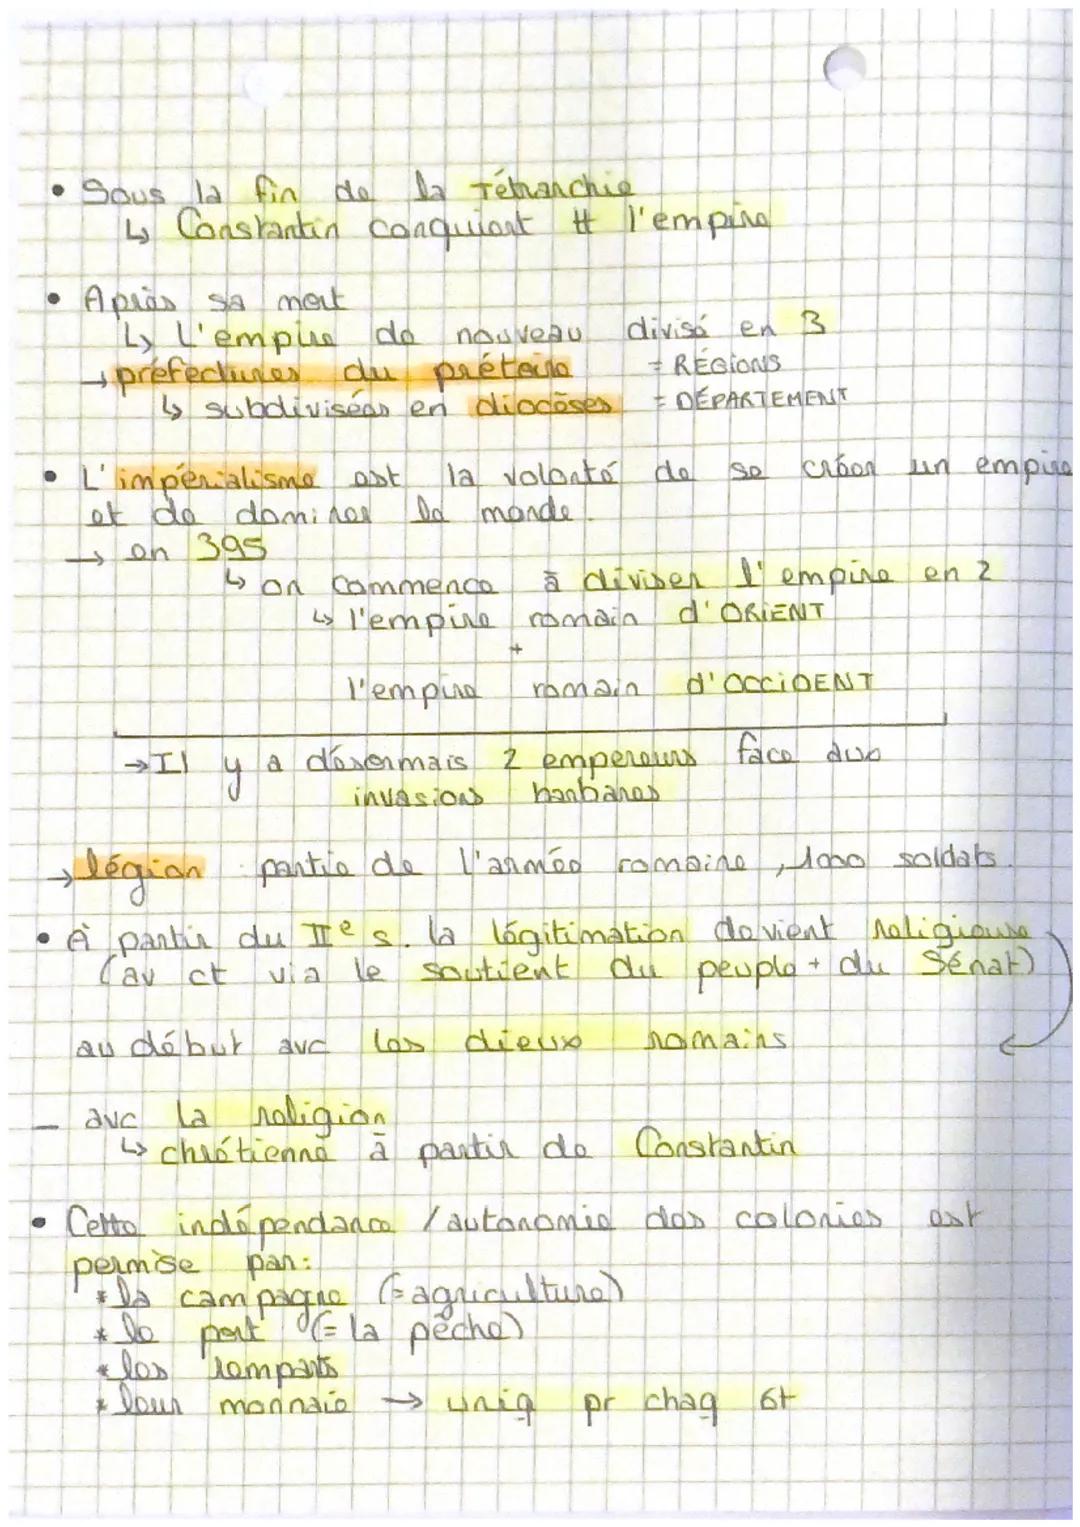 • Sous la fin de la Tétrarchie
↳ Constantin conquiert tt l'empire
• Après sa mort
↳ L'empire de nouveau divisé en 3
→ préfectures du prétoire = RÉGIONS
↳ subdivisées en diocèses = DÉPARTEMENT
• L'impérialisme est la volonté de se créer un empire
et de dominer le monde.
→ en 395
↳ on commence à diviser l'empire en 2
↳ l'empire romain d'ORIENT
+
l'empire romain d'OCCIDENT
→ Il y a désormais 2 empereurs face aux
invasions barbares
→ légion : partie de l'armée romaine, 1000 soldats.
• À partir du IIe s. la légitimation devient religieuse
(av ct via le soutient du peuple + du Sénat)
au début avc les dieux romains
– avc la religion
↳ chrétienne à partir de Constantin
• Cette indépendance / autonomie des colonies est
permise par:
* la campagne (= agriculture)
* le port (= la pêche)
* les remparts
* leur monnaie → uniq pr chaq